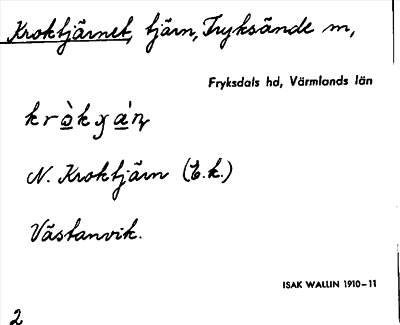 Kroktjärnet, tjärn, Fryksände m,
Fryksdals hd, Värmlands län
N. Kroktjärn (E.k.)
Västanvik.
ISAK WALLIN 1910–11
2